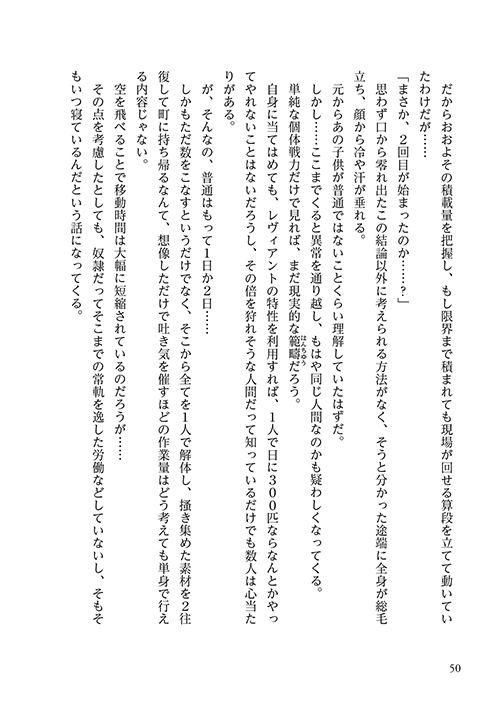 だからおおよその積載量を把握し、もし限界まで積まれても現場が回せる算段を立てて動いてい
たわけだが……
「まさか、２回目が始まったのか……？」
思わず口から零れ出たこの結論以外に考えられる方法がなく、そうと分かった途端に全身が総毛
立ち、顔から冷や汗が垂れる。
元からあの子供が普通ではないことくらい理解していたはずだ。
しかし……ここまでくると異常を通り越し、もはや同じ人間なのかも疑わしくなってくる。
単純な個体戦力だけで見れば、まだ現実的な範疇だろう。
はんちゅう
自身に当てはめても、レヴィアントの特性を利用すれば、１人で日に３００匹ならなんとかやっ
てやれないことはないだろうし、その倍を狩れそうな人間だって知っているだけでも数人は心当た
りがある。
が、そんなの、普通はもって１日か２日……
しかもただ数をこなすというだけでなく、そこから全てを１人で解体し、掻き集めた素材を２往
復して町に持ち帰るなんて、想像しただけで吐き気を催すほどの作業量はどう考えても単身で行え
る内容じゃない。
空を飛べることで移動時間は大幅に短縮されているのだろうが……
その点を考慮したとしても、奴隷だってそこまでの常軌を逸した労働などしていないし、そもそ
もいつ寝ているんだという話になってくる。
50